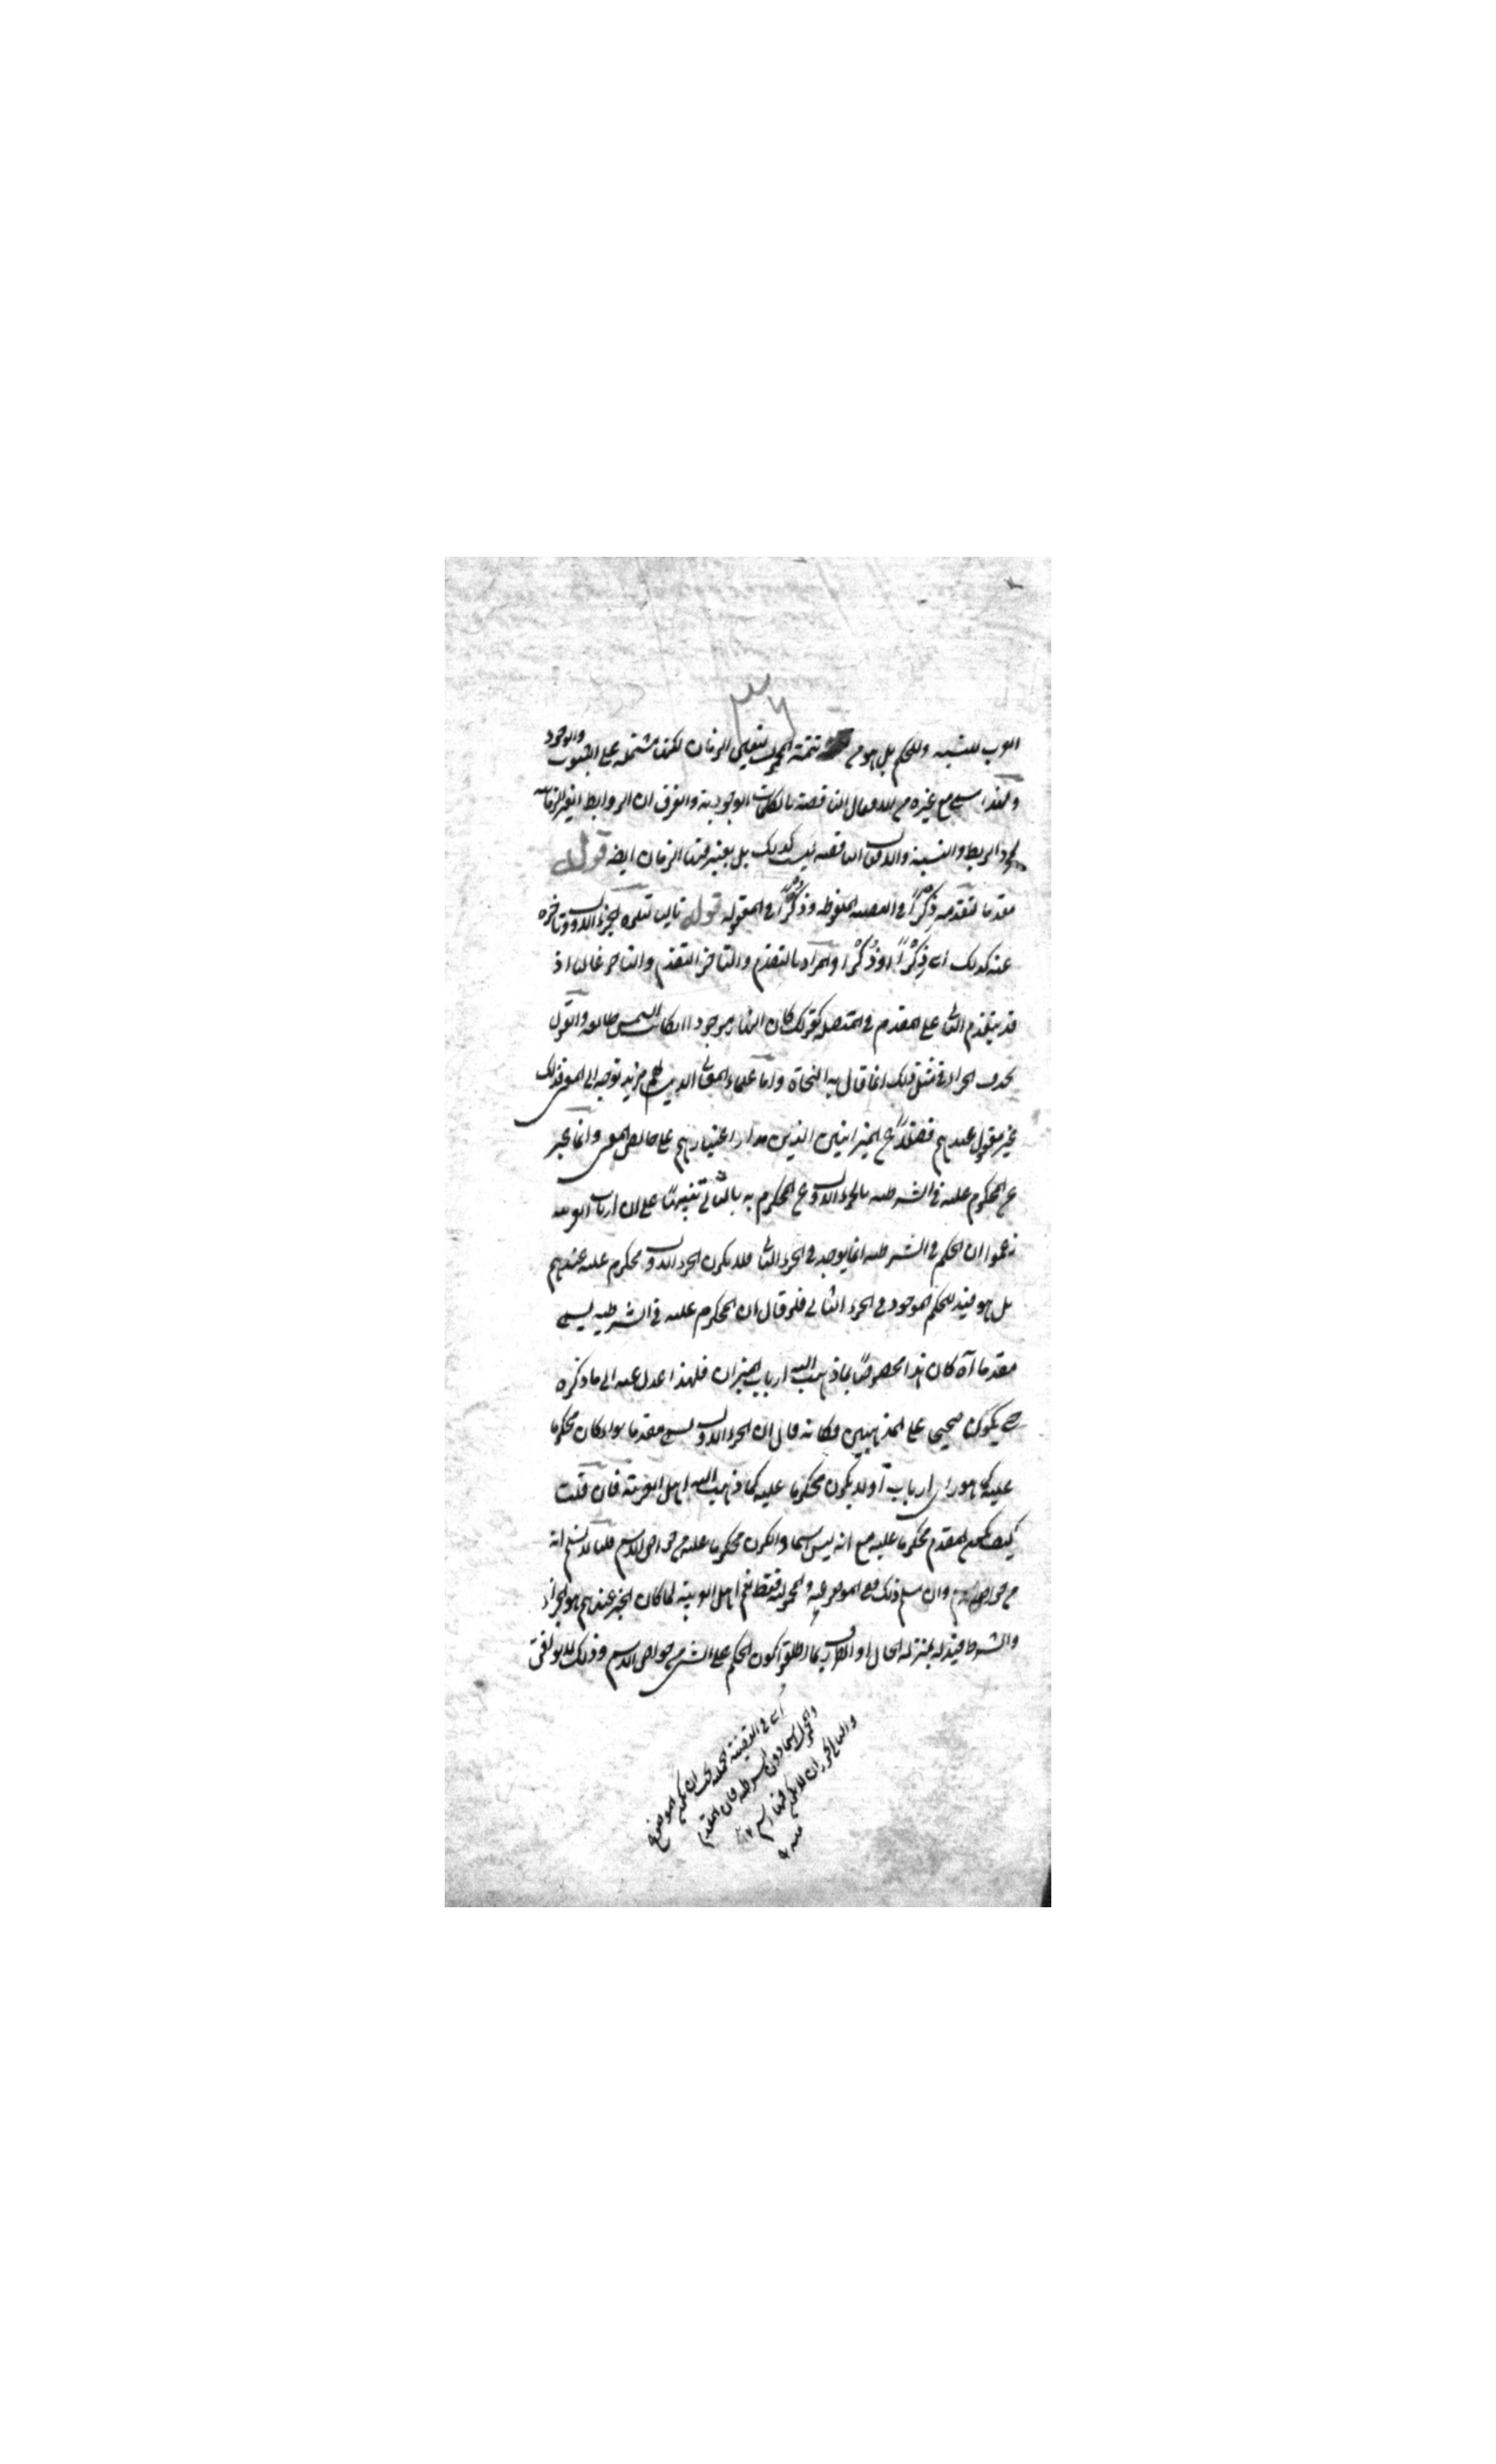 ٣٦
العرب للنسبة والحكم بل هو من تتمة المحمول لتعيين الزمان لكنها مشتملة على الثبوت والوجود
ولهذا سمى مع غيره من الافعال الناقصة بالكلمات الوجودية والفرق ان الروابط الغير الزمانية
لمجرد الربط والنسبة والافعال الناقصة ليست كذلك بل يعتبر فيها الزمان ايضه قوله
مقدما لتقدمه ذِكرًا في القضية الملفوظة وذُكرًا في المعقولة قوله تاليا لتلوه الجزء الاول وتأخره
عنه كذلك اى ذِكرًا او ذُكرًا والمراد بالتقدم والتأخر التقدم والتأخر غالبا اذ
قد يتقدم التالى على المقدم في المتصلة كقولك كان النهار موجودا ان كانت الشمس طالعة والقول
بحذف الجزاء في مثل ذلك انما قال به النحاة واما علماء المعانى الذين لهم مزيد توجه الى المعنى فذلك
غير مقبول عندهم فضلا عن الميزانيين الذين مدار اعتبارهم على خالص المعنى وانما عبر
عن المحكوم عليه في الشرطية بالجزء الاول وعن المحكوم به بالثانى تنبيها على ان ارباب العربية
زعموا ان الحكم في الشرطية انما يوجد في الجزء الثانى فلا يكون الجزء الاول محكوم عليه عندهم
بل هو قيد للحكم الموجود في الجزء الثانى فلو قال ان المحكوم عليه في الشرطية يسمى
مقدما آه كان هذا مخصوصا بما ذهب اليه ارباب الميزان فلهذا عدل عنه الى ما ذكره
حتى يكون صحيحا على المذهبين فكانه قال ان الجزء الاول يسمى مقدما سواء كان محكوما
عليه كما هو راى ارباب آ او لا يكون محكوما عليه كما ذهب اليه اهل العربية فان قلت
كيف يكون المقدم محكوما عليه مع انه ليس اسما والكون محكوما عليه من خواص الاسم قلنا لا نسلم انه
من خواص الاسم وان سلم ذلك فمع الموضوعية والمحمولية فقط نعم اهل العربية لما كان الخبر عندهم هو الجزاء
والشرط قيد له بمنزلة الحال او الظرف بما اطلقوا كون الحكم على الشئ من خواص الاسم وذلك لا يوافق
اى في القضية الحملية يجب ان يكون الموضوع
والمحمول اسما دون الشرطية فان المقدم
والتالى فيها
منه